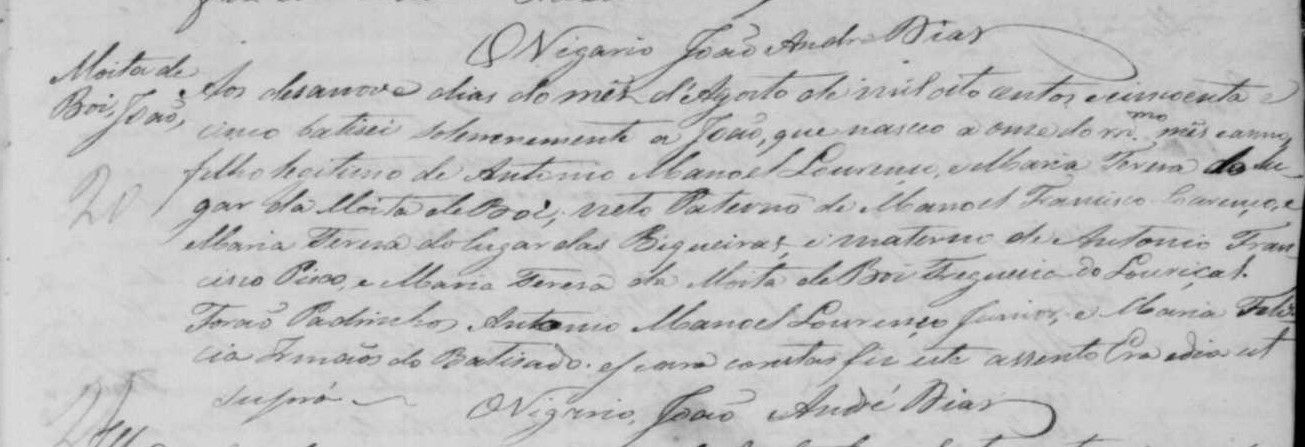 O Vigario João André Dias
Moita de
Boi, João,
20
Aos desanove dias do mêz d'Agosto de mil oito centos e cincoenta e
cinco batisei solemnemente a João, que nasceo a onze do m.mo mês e anno,
filho legitimo de Antonio Manoel Lourenço, e Maria Teresa do lu-
gar da Moita de Boi; neto Paterno de Manoel Francisco Lourenço, e
Maria Teresa do lugar das Biqueiras, e materno de Antonio Fran-
cisco e Maria Teresa da Moita de Boi Freguesia do Louriçal.
Forão Padrinhos Antonio Manoel Lourenço Junior, e Maria Feli-
cia Irmãos do Batisado. e para constar fiz este assento Era e dia ut
supra
O Vigario, João André Dias